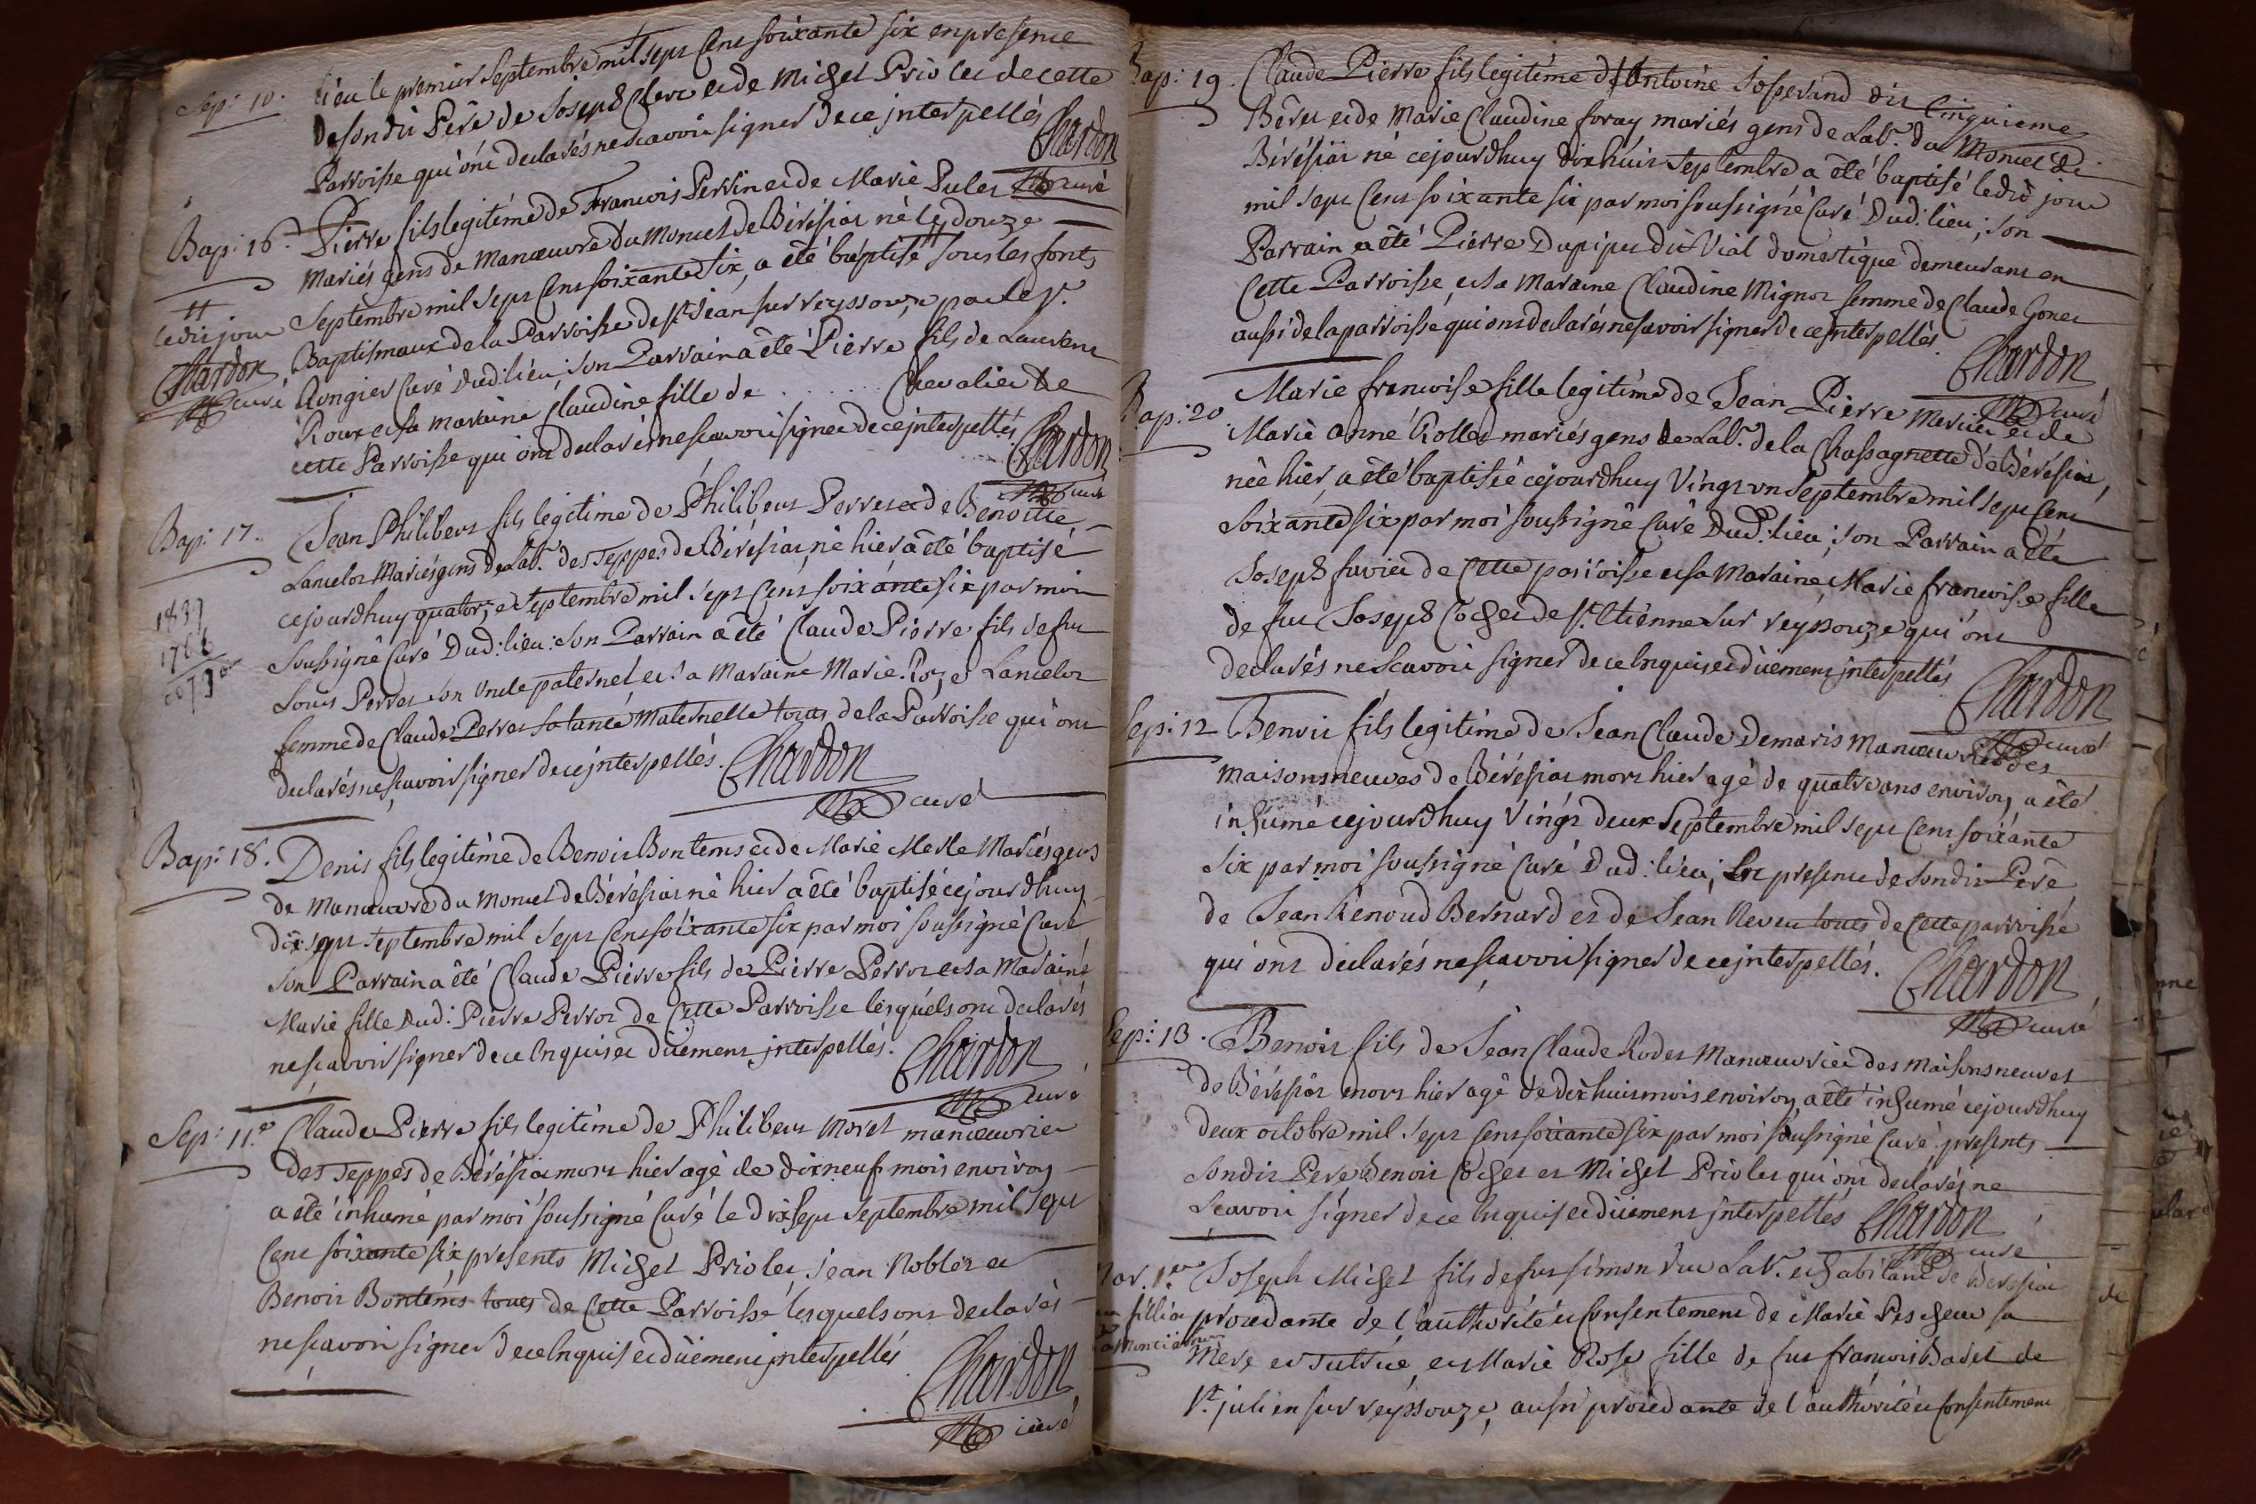 Sep: 10.
lieu le premier septembre mil sept Cent soixante six en presence
de sondit Pere de Joseph Clerc et de Michel Prioler de cette
Parroisse qui ont declarés ne scavoir signer de ce interpellés Chardon
curé
Bap: 16. Pierre fils legitime de Francois Perrin et de Marie Puler
mariés gens de manoeuvre du Moncet de Béréziat né le douze
septembre mil sept Cent soixante six, a été baptisé # sous les fonts
# ledit jour
Chardon curé
Baptismaux de la Parroisse de St Jean sur reyssouze par le Sr.
Rongier Curé dud: lieu; son Parrain a été Pierre fils de Laurent
Roux et sa maraine Claudine fille de . . . . Chevalier de
cette Parroisse qui ont declarés ne scavoir signer de ce interpellés. Chardon
curé
Bap: 17. Jean Philibert fils legitime de Philibert Perret et de Benoitte
Lancelot Mariés gens de Labr. des Teppes de Béréziat né hier a été baptisé
cejourdhuy quatorze septembre mil sept Cent soixante six par moi
1837
1766
soussigné Curé dud: lieu: son Parrain a été Claude Pierre fils de feu
Louis Perret son Oncle paternel et sa Maraine Marie Roze Lancelot
femme de Claude Perret sa tante Maternelle tous de la Parroisse qui ont
declarés ne scavoir signer de ce interpellés. Chardon
curé
Bap: 18. Denis fils legitime de Benoit Bontems et de Marie Merle Mariés gens
de manoeuvre du Moncet de Béréziat né hier a été baptisé cejourdhuy
dix sept septembre mil sept Cent soixante six par moi soussigné Curé
son Parrain a été Claude Pierre fils de Pierre Perrot et sa Maraine
Marie fille dud: Pierre Perrot de Cette Parroisse lesquels ont declarés
ne scavoir signer de ce Enquis et düement interpellés. Chardon
curé
Sep: 11.e Claude Pierre fils legitime de Philibert Moret manoeuvrier
des Teppes de Béréziat mort hier agé de dix neuf mois environ
a été inhumé par moi soussigné Curé le dix sept septembre mil sept
Cent soixante six, presents Michel Prioler, Jean Noblet et
Benoit Bontems tous de Cette Parroisse lesquels ont declarés
ne scavoir signer de ce Enquis et düement interpellés
Chardon
curé
Bap: 19. Claude Pierre fils legitime d'Antoine Josserand dit Cinquieme
et de Marie Claudine foray mariés gens de Labr. du Moncet de
Béréziat né cejourdhuy dix huit septembre a été baptisé ledit jour
mil sept Cent soixante six par moi soussigné Curé dud: lieu; son
Parrain a été Pierre Dupipet dit Vial domestique demeurant en
Cette Parroisse, et sa Maraine Claudine Mignot femme de Claude Gonet
aussi de la parroisse, qui ont declarés ne scavoir signer de ce interpellés.
Chardon
curé
Bap: 20. Marie francoise fille legitime de Jean Pierre Mercier et de
Marie Anne Rollet mariés gens de Labr. de la Chassagnette de Béréziat,
née hier, a été baptisée cejourdhuy Vingt un septembre mil sept Cent
soixante six par moi soussigné Curé dud: lieu; son Parrain a été
Joseph favier de Cette parroisse et sa Maraine Marie francoise fille
de feu Joseph Cochet de St. Etienne sur reyssouze qui ont
declarés ne scavoir signer de ce Enquis et düement interpellés
Chardon
curé
Sep: 12 Benoit fils legitime de Jean Claude Demaris Manoeuvrier des
Maisonsneuves de Béréziat mort hier agé de quatre ans environ, a été
inhumé cejourdhuy Vingt deux septembre mil sept Cent soixante
six par moi soussigné Curé dud: lieu; en presence de sondit Pere
de Jean Renoud Bernard et de Jean Neveu tous de Cette parroisse
qui ont declarés ne scavoir signer de ce interpellés. Chardon
curé
Sep: 13. Benoit fils de Jean Claude Rodet Manoeuvrier des Maisonsneuves
de Béréziat mort hier agé de dix huit mois environ, a été inhumé cejourdhuy
deux octobre mil sept Cent soixante six par moi soussigné Curé, presents
sondit Pere Benoit Cochet et Michel Prioler qui ont declarés ne
scavoir signer de ce Enquis et düement interpellés Chardon
curé
Nov. 1.er Joseph Michel fils de feu simon Duc Labr. et habitant de Bereziat
procedante de l'authorité et Consentement de Marie Pescheux sa
Mere et Tutrice, et Marie Rose fille de feu francois Badet de
St. julien sur reyssouze, aussi procedante de l'authorité et Consentement